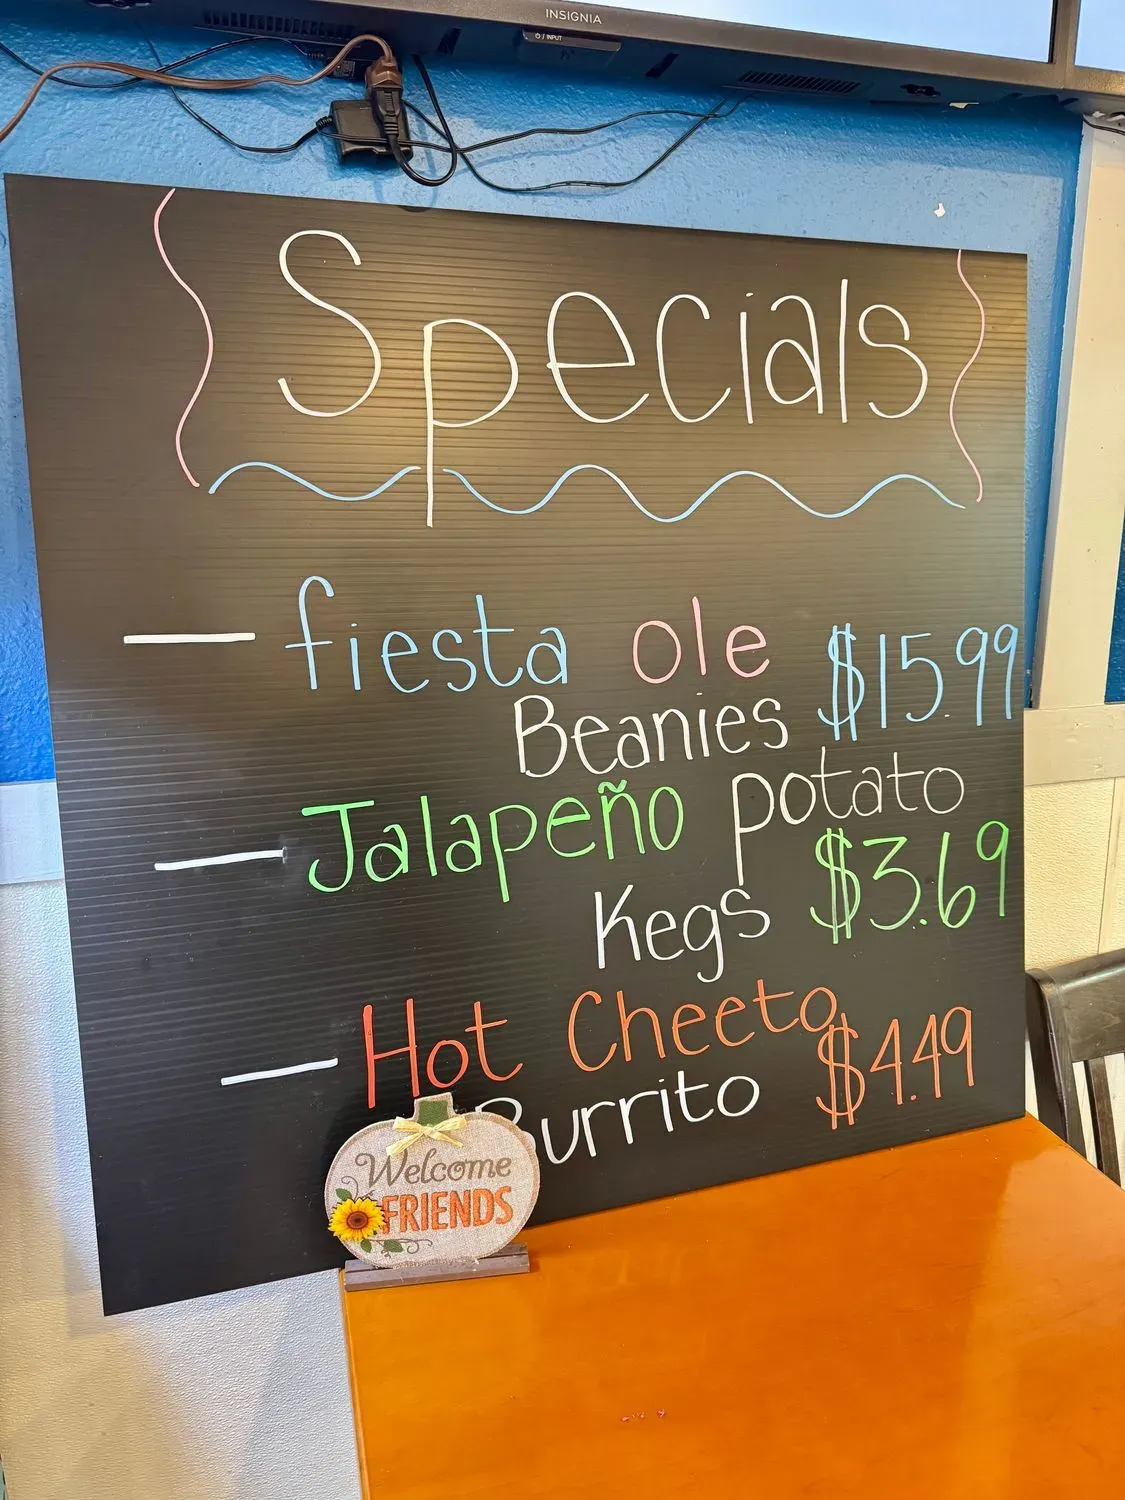 INSIGNIA
INPUT
Specials
— fiesta Ole
Beanies $15.99
— Jalapeño potato
Kegs $3.69
— Hot Cheeto
Burrito $4.49
Welcome
FRIENDS